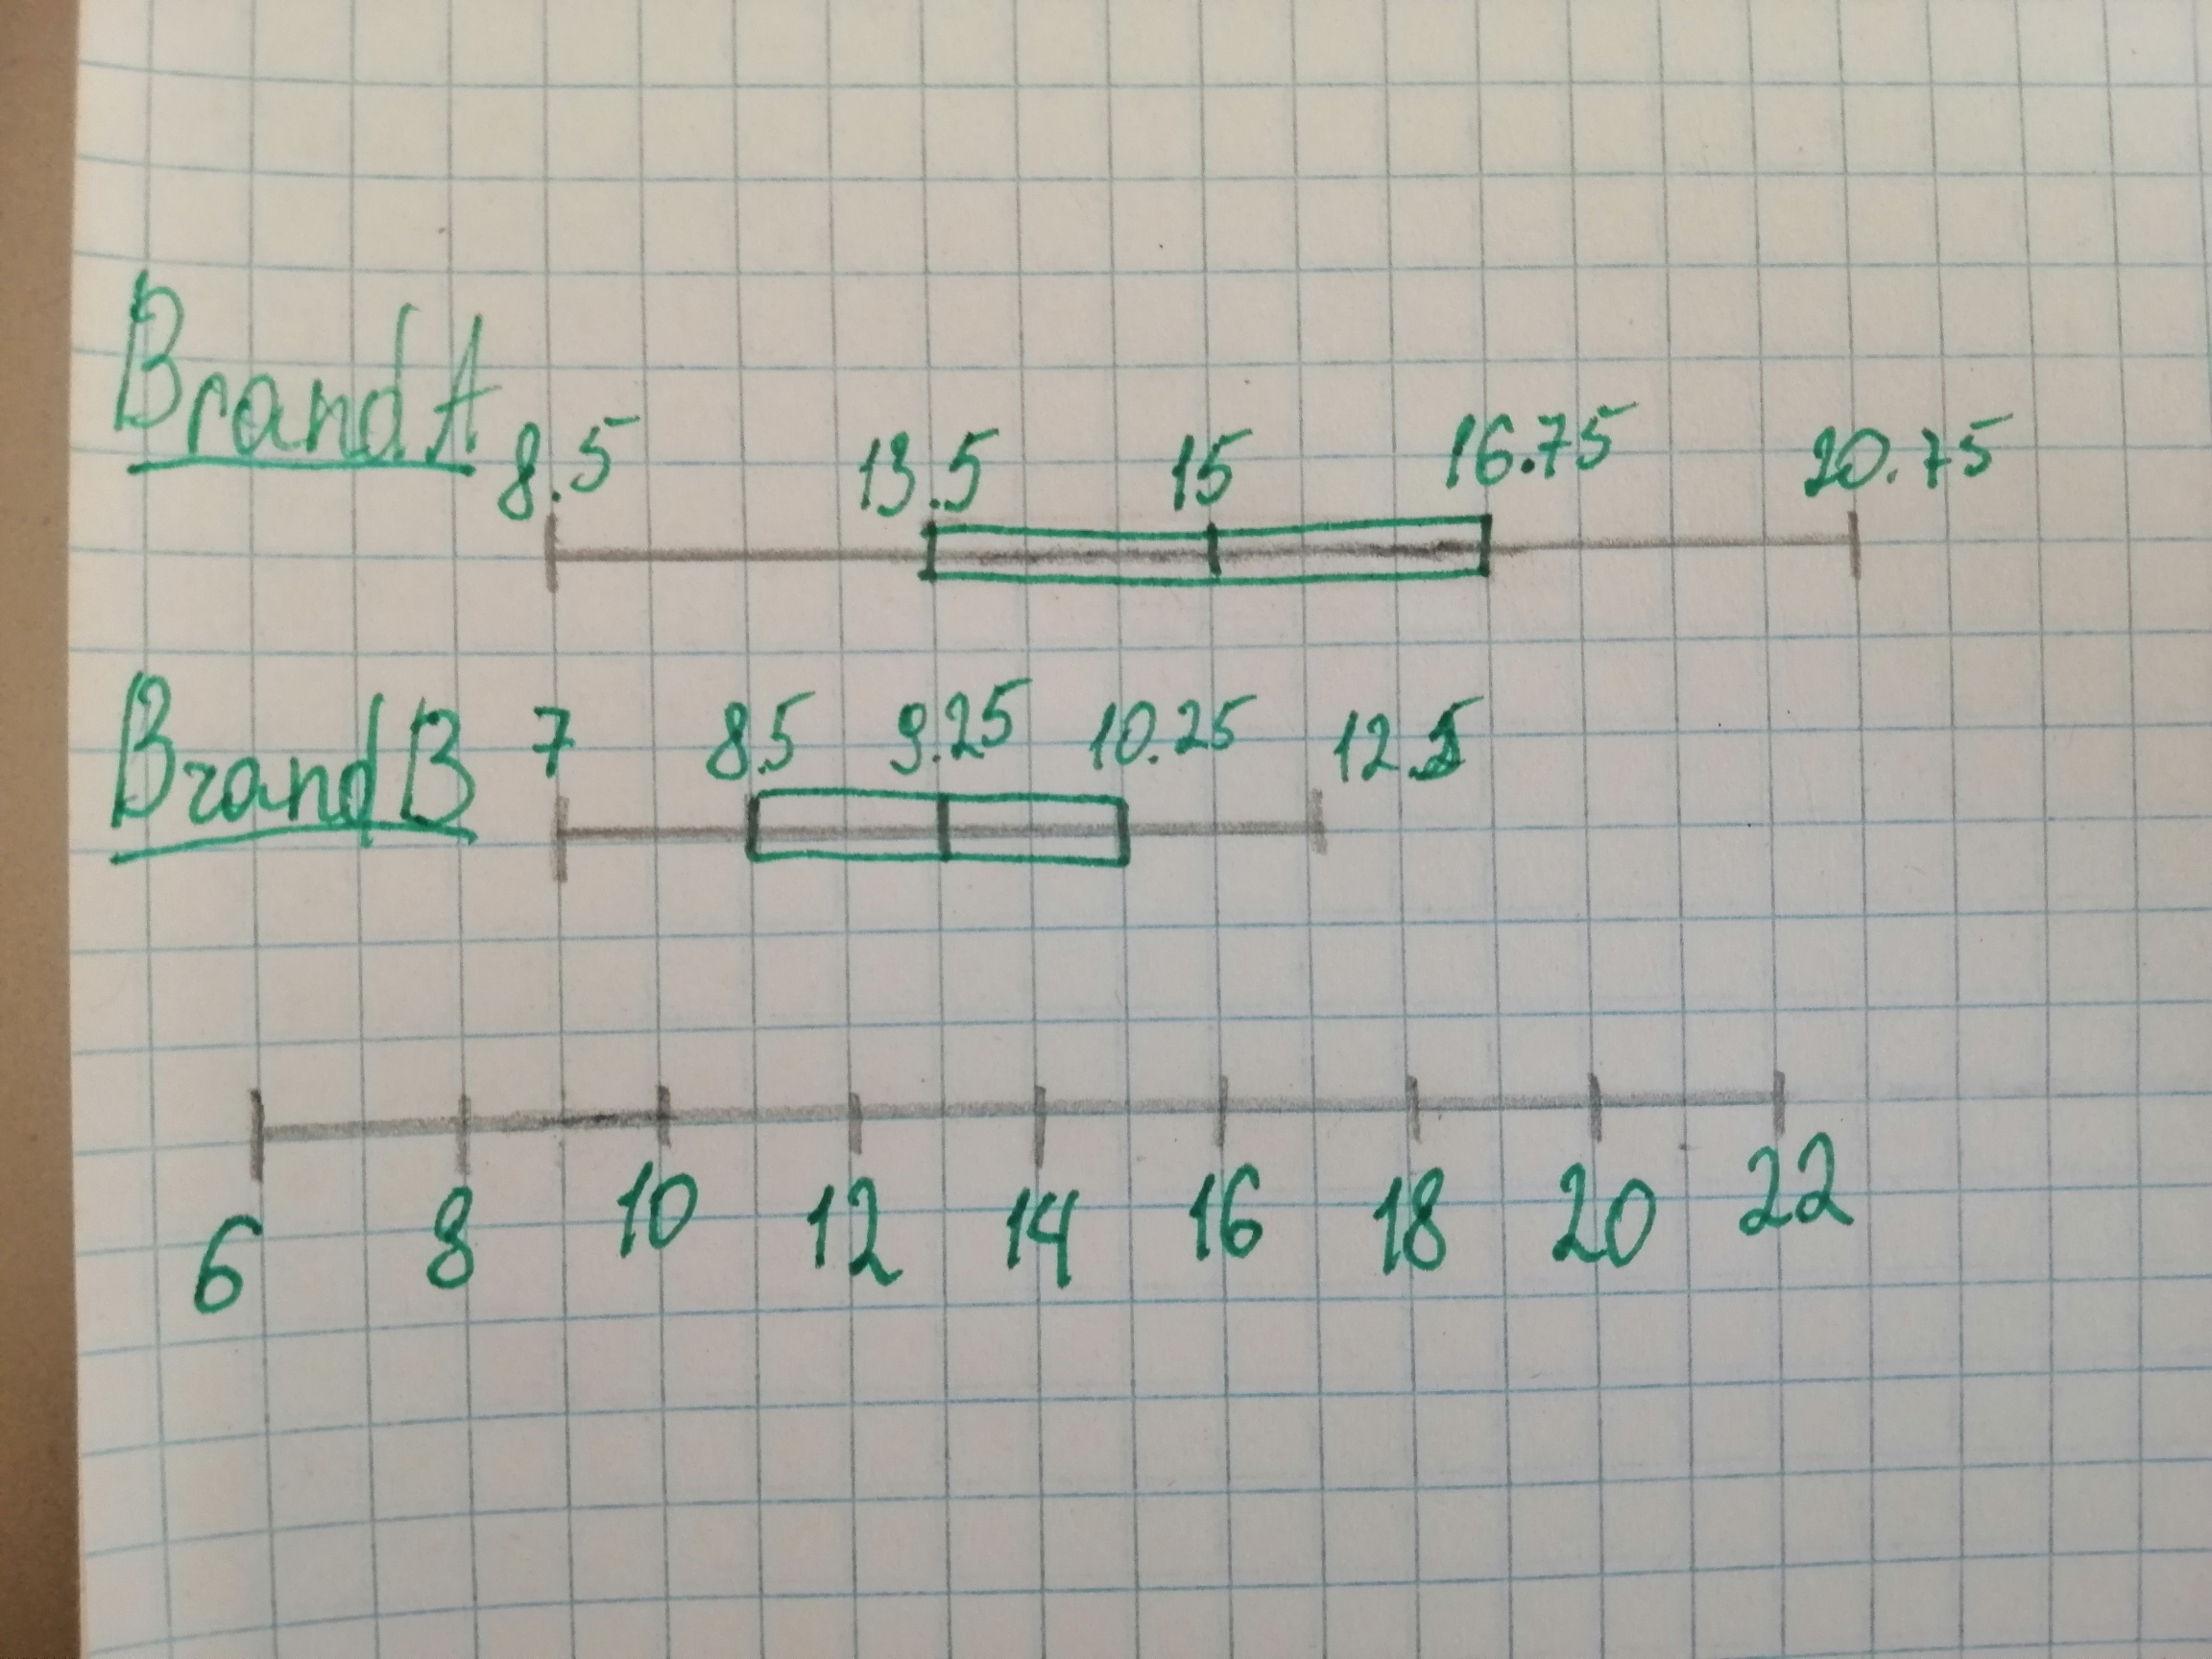 Brand A 8.5 13.5 15 16.75 20.75
Brand B 7 8.5 9.25 10.25 12.5
6 8 10 12 14 16 18 20 22